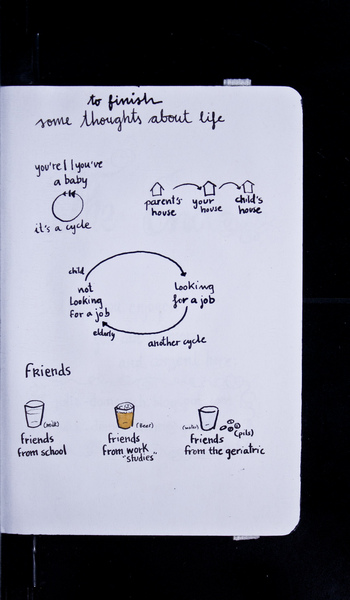 to finish
some thoughts about life
you're | | you've
a baby
it's a cycle
parent's
house
your
house
child's
house
child
not
looking
for a job
looking
for a job
elderly
another cycle
Friends
(milk)
friends
from school
(Beer)
friends
from work
"studies"
(water)
(pils)
friends
from the geriatric